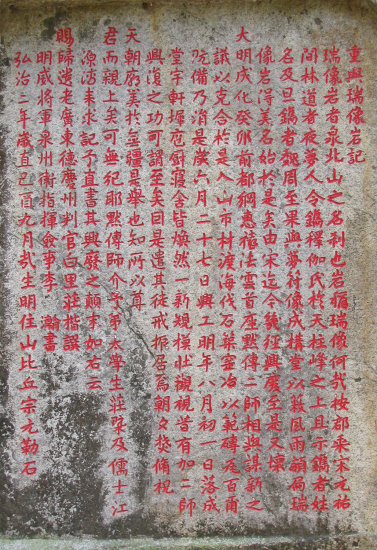 重興瑞像岩記
瑞像岩者泉北山之名刹也岩稱瑞像何哉按郡乘宋元祐
間林道者夜夢人令鐫釋伽氏於天柱峰之上且示鐫者姓
名及旦鐫者踵周至果與夢符像成構堂以蔽風雨額扃瑞
像岩得美名始於是矣由宋迄今幾經興廢至是又壞
大明成化癸卯前都綱惠穩法雲首座默傳二師相與謀新之
議以克合於是入山市材渡海伐石築窑冶以範磚瓦百爾
既備乃涓是歲六月二十七日興工明年八月初一日落成
堂宇軒墀庖廚寢舍皆煥然一新規模壯觀視昔有加二師
興復之功可謂至矣因是遺其徒戒振居焉朝夕焚脩祝
天朝廟美於無疆是舉也知所以尊
君而親上矣可無紀耶默傳師介予弟太學生莊槩及儒士江
源清來求記予直書其興廢之顛事如右云
賜歸逸老廣東德慶州判官白里莊楷譔
明威將軍泉州衛指揮僉事李瀚書
弘治二年歲直己酉九月哉生明住山比丘宗元勒石